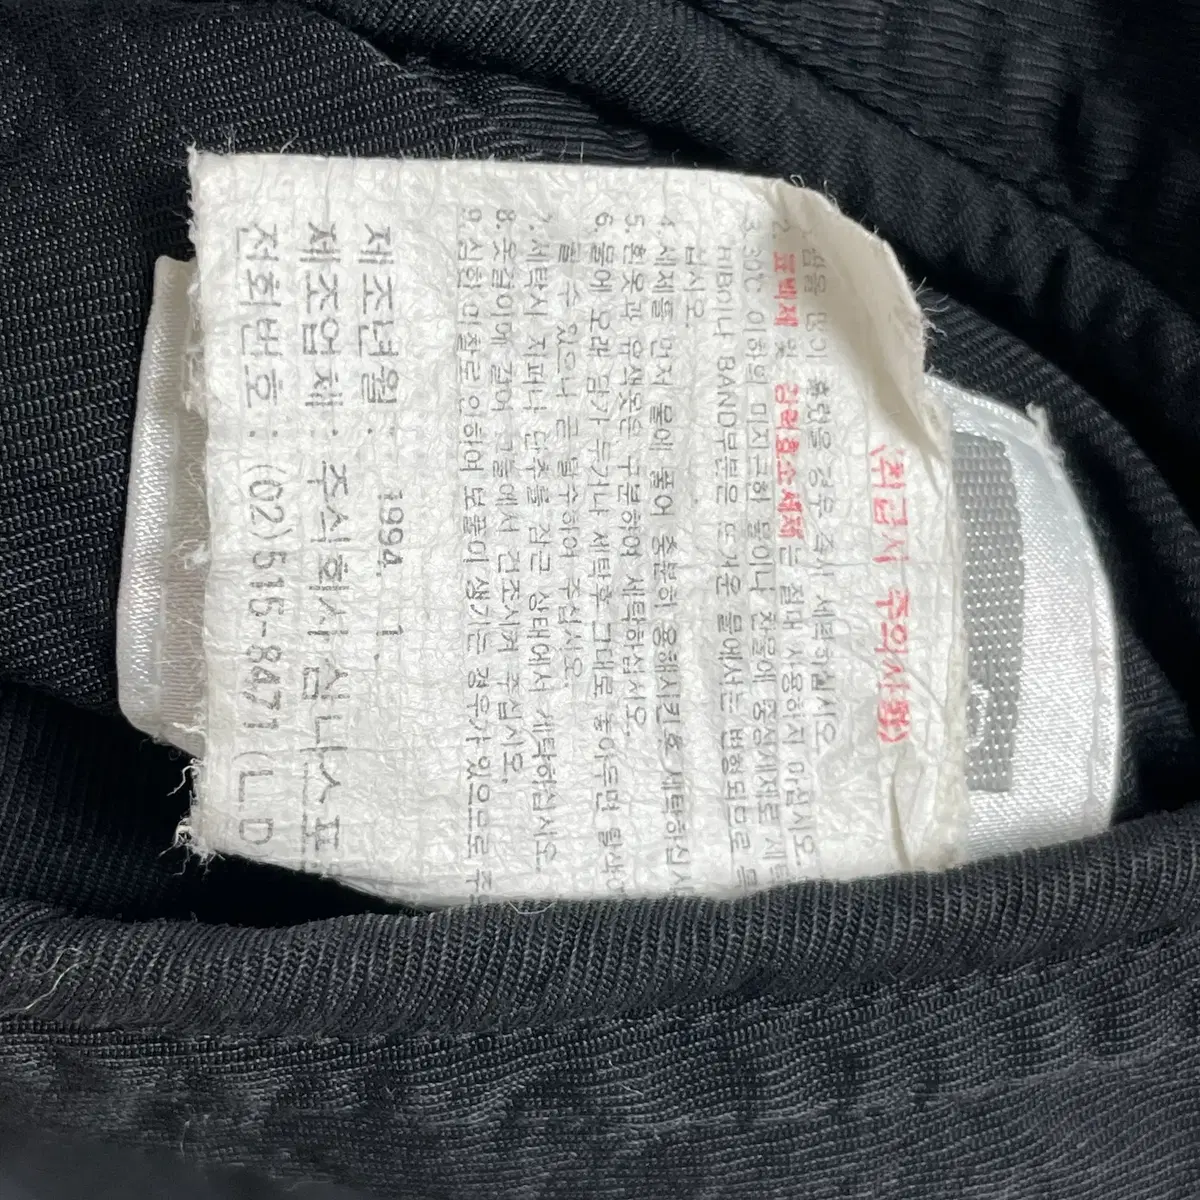 (취급시 주의사항)
땀을 많이 흘렸을 경우 즉시 세탁하십시오
2. 표백제 및 강력효소세제는 절대 사용하지 마십시오
3. 30℃ 이하의 미지근한 물이나 찬물에 중성세제로 세탁
BAND부분은 뜨거운 물에서는 변형되므로
십시오.
4. 세제를 먼저 물에 풀어 충분히 용해시킨후 세탁하십시
5. 흰옷과 유색옷은 구분하여 세탁하십시오.
6. 물에 오래 담가 두거나 세탁후 그대로 놓아두면 탈색
될 수 있으니 곧 탈수하여 주십시오.
7. 세탁시 지퍼나 단추를 잠근 상태에서 세탁하십시오.
8. 옷걸이에 걸어 그늘에서 건조시켜 주십시오.
9. 심한 마찰로 인하여 보풀이 생기는 경우가 있으므로 주
제조년월: 1994. 1.
제조업체: 주식회사 삼나스포
전화번호: (02)516-8471 (L.D